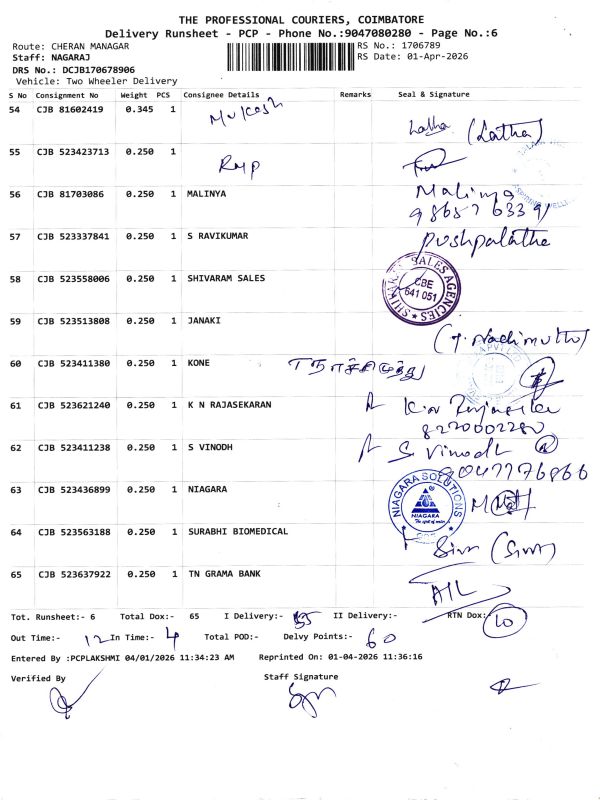 THE PROFESSIONAL COURIERS, COIMBATORE
Delivery Runsheet - PCP - Phone No.:9047080280 - Page No.:6
Route: CHERAN MANAGAR RS No.: 1706789
Staff: NAGARAJ RS Date: 01-Apr-2026
DRS No.: DCJB170678906
Vehicle: Two Wheeler Delivery
S No Consignment No Weight PCS Consignee Details Remarks Seal & Signature
54 CJB 81602419 0.345 1 Mukesh
Latha (Latha)
55 CJB 523423713 0.250 1
RMP
56 CJB 81703086 0.250 1 MALINYA Malinya
57 CJB 523337841 0.250 1 S RAVIKUMAR pushpalatha
58 CJB 523558006 0.250 1 SHIVARAM SALES
SALES AGENCIES
CBE
641 051
59 CJB 523513808 0.250 1 JANAKI
60 CJB 523411380 0.250 1 KONE
61 CJB 523621240 0.250 1 K N RAJASEKARAN
8220002280
62 CJB 523411238 0.250 1 S VINODH S Vinodh
9047776866
63 CJB 523436899 0.250 1 NIAGARA
NIAGARA SOLUTIONS
NIAGARA
64 CJB 523563188 0.250 1 SURABHI BIOMEDICAL
65 CJB 523637922 0.250 1 TN GRAMA BANK
Tot. Runsheet:- 6 Total Dox:- 65 I Delivery:- 55 II Delivery:- RTN Dox:- 10
Out Time:- 12 In Time:- 4 Total POD:- Delvy Points:- 60
Entered By :PCPLAKSHMI 04/01/2026 11:34:23 AM Reprinted On: 01-04-2026 11:36:16
Verified By Staff Signature